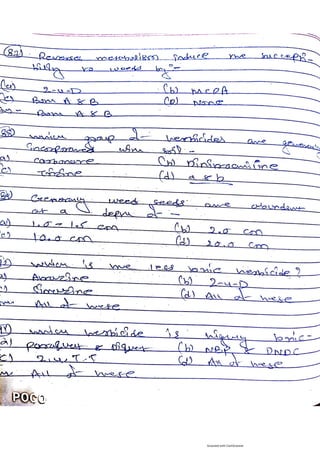 (87) Reverse metabolism induce the suscepti-
bility to weeds by:-
(a) 2-4-D (b) MCPA
(c) Both A & B (D) None
Ans- Both A & B
(88) which group of herbicides are generally
incorporated with soil-
a) carbamate (b) Dinitroaniline
c) Triazine (d) a & b
Generally weed seeds are abundant
at a depth of -
a) 1.0 - 1.5 cm (b) 2.0 cm
c) 10.0 cm (d) 20.0 cm
which is the less toxic herbicide?
a) Atrazine (b) 2-4-D
c) Simazine (d) All of these
All of these
which herbicide is highly toxic-
a) paraquat & diquat (b) & DNOC
c) 2,4,T-T (d) All of these
All of these
POCO
Scanned with CamScanner